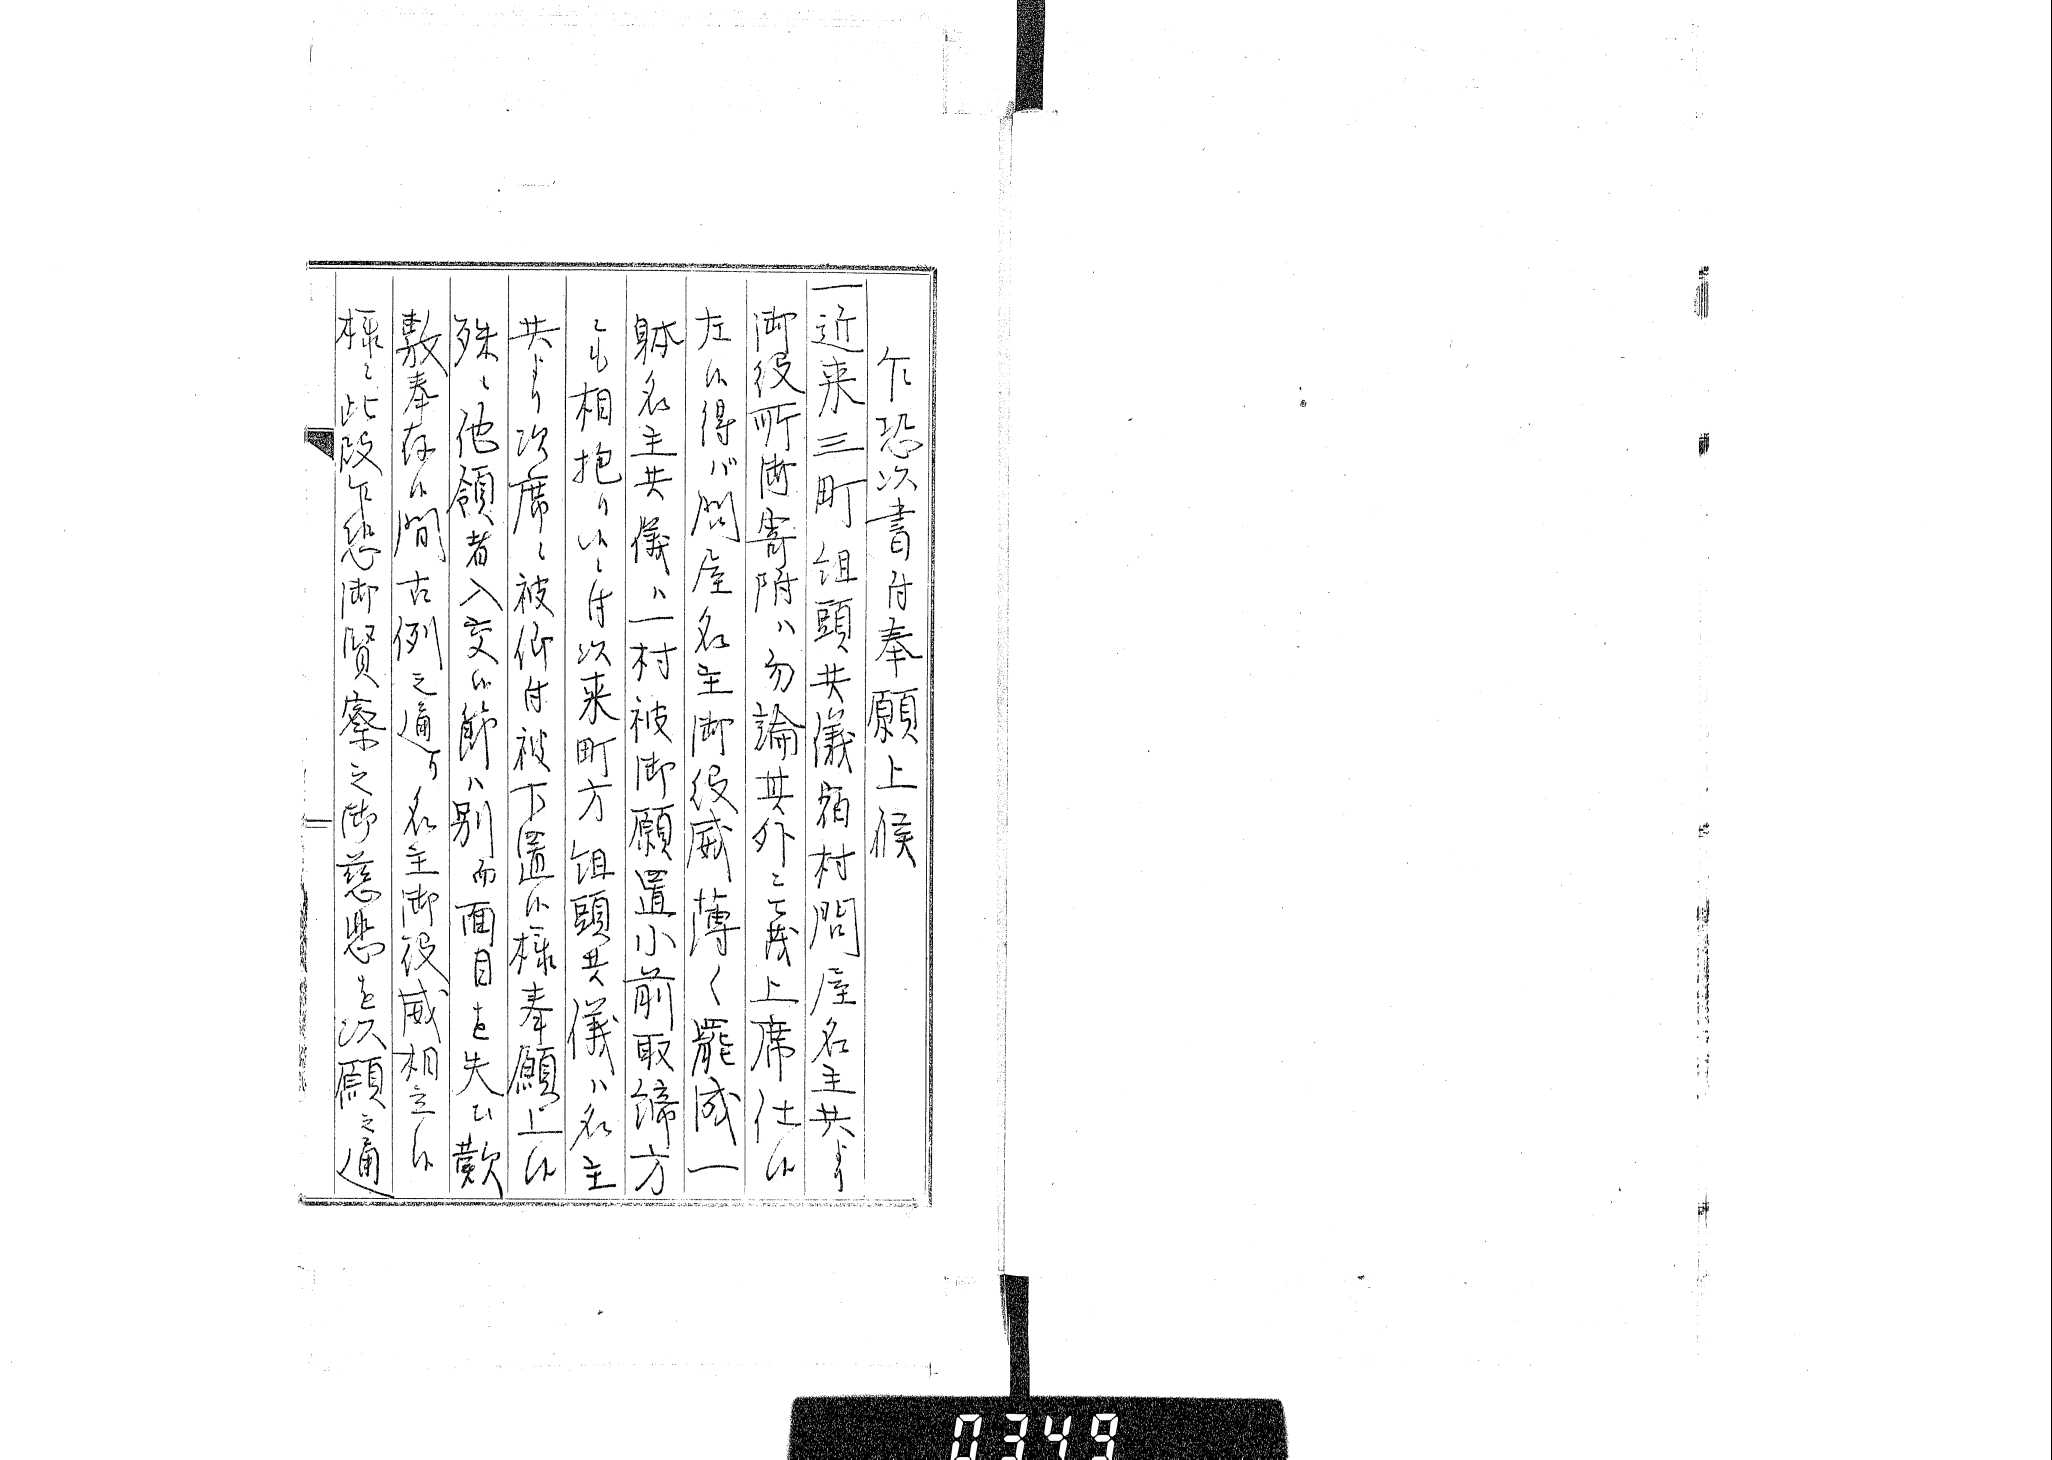 乍恐次書付奉願上候
一近来三町組頭共儀宿村問屋名主共ゟ
御役所御寄附ハ勿論其外ニ至茂上席仕候
左候得バ問屋名主御役威薄く罷成一
躰名主共儀ハ一村被御願置小前取締方
ニも相抱り候ニ付次来町方組頭共儀ハ名主
共ゟ次席ニ被仰付被下置候様奉願上候
殊ニ他領者入交候節ハ別而面目を失ひ歎
敷奉存候間古例之通り名主御役威相立候
様ニ此段乍恐御賢察之御慈悲を以願之通
0349